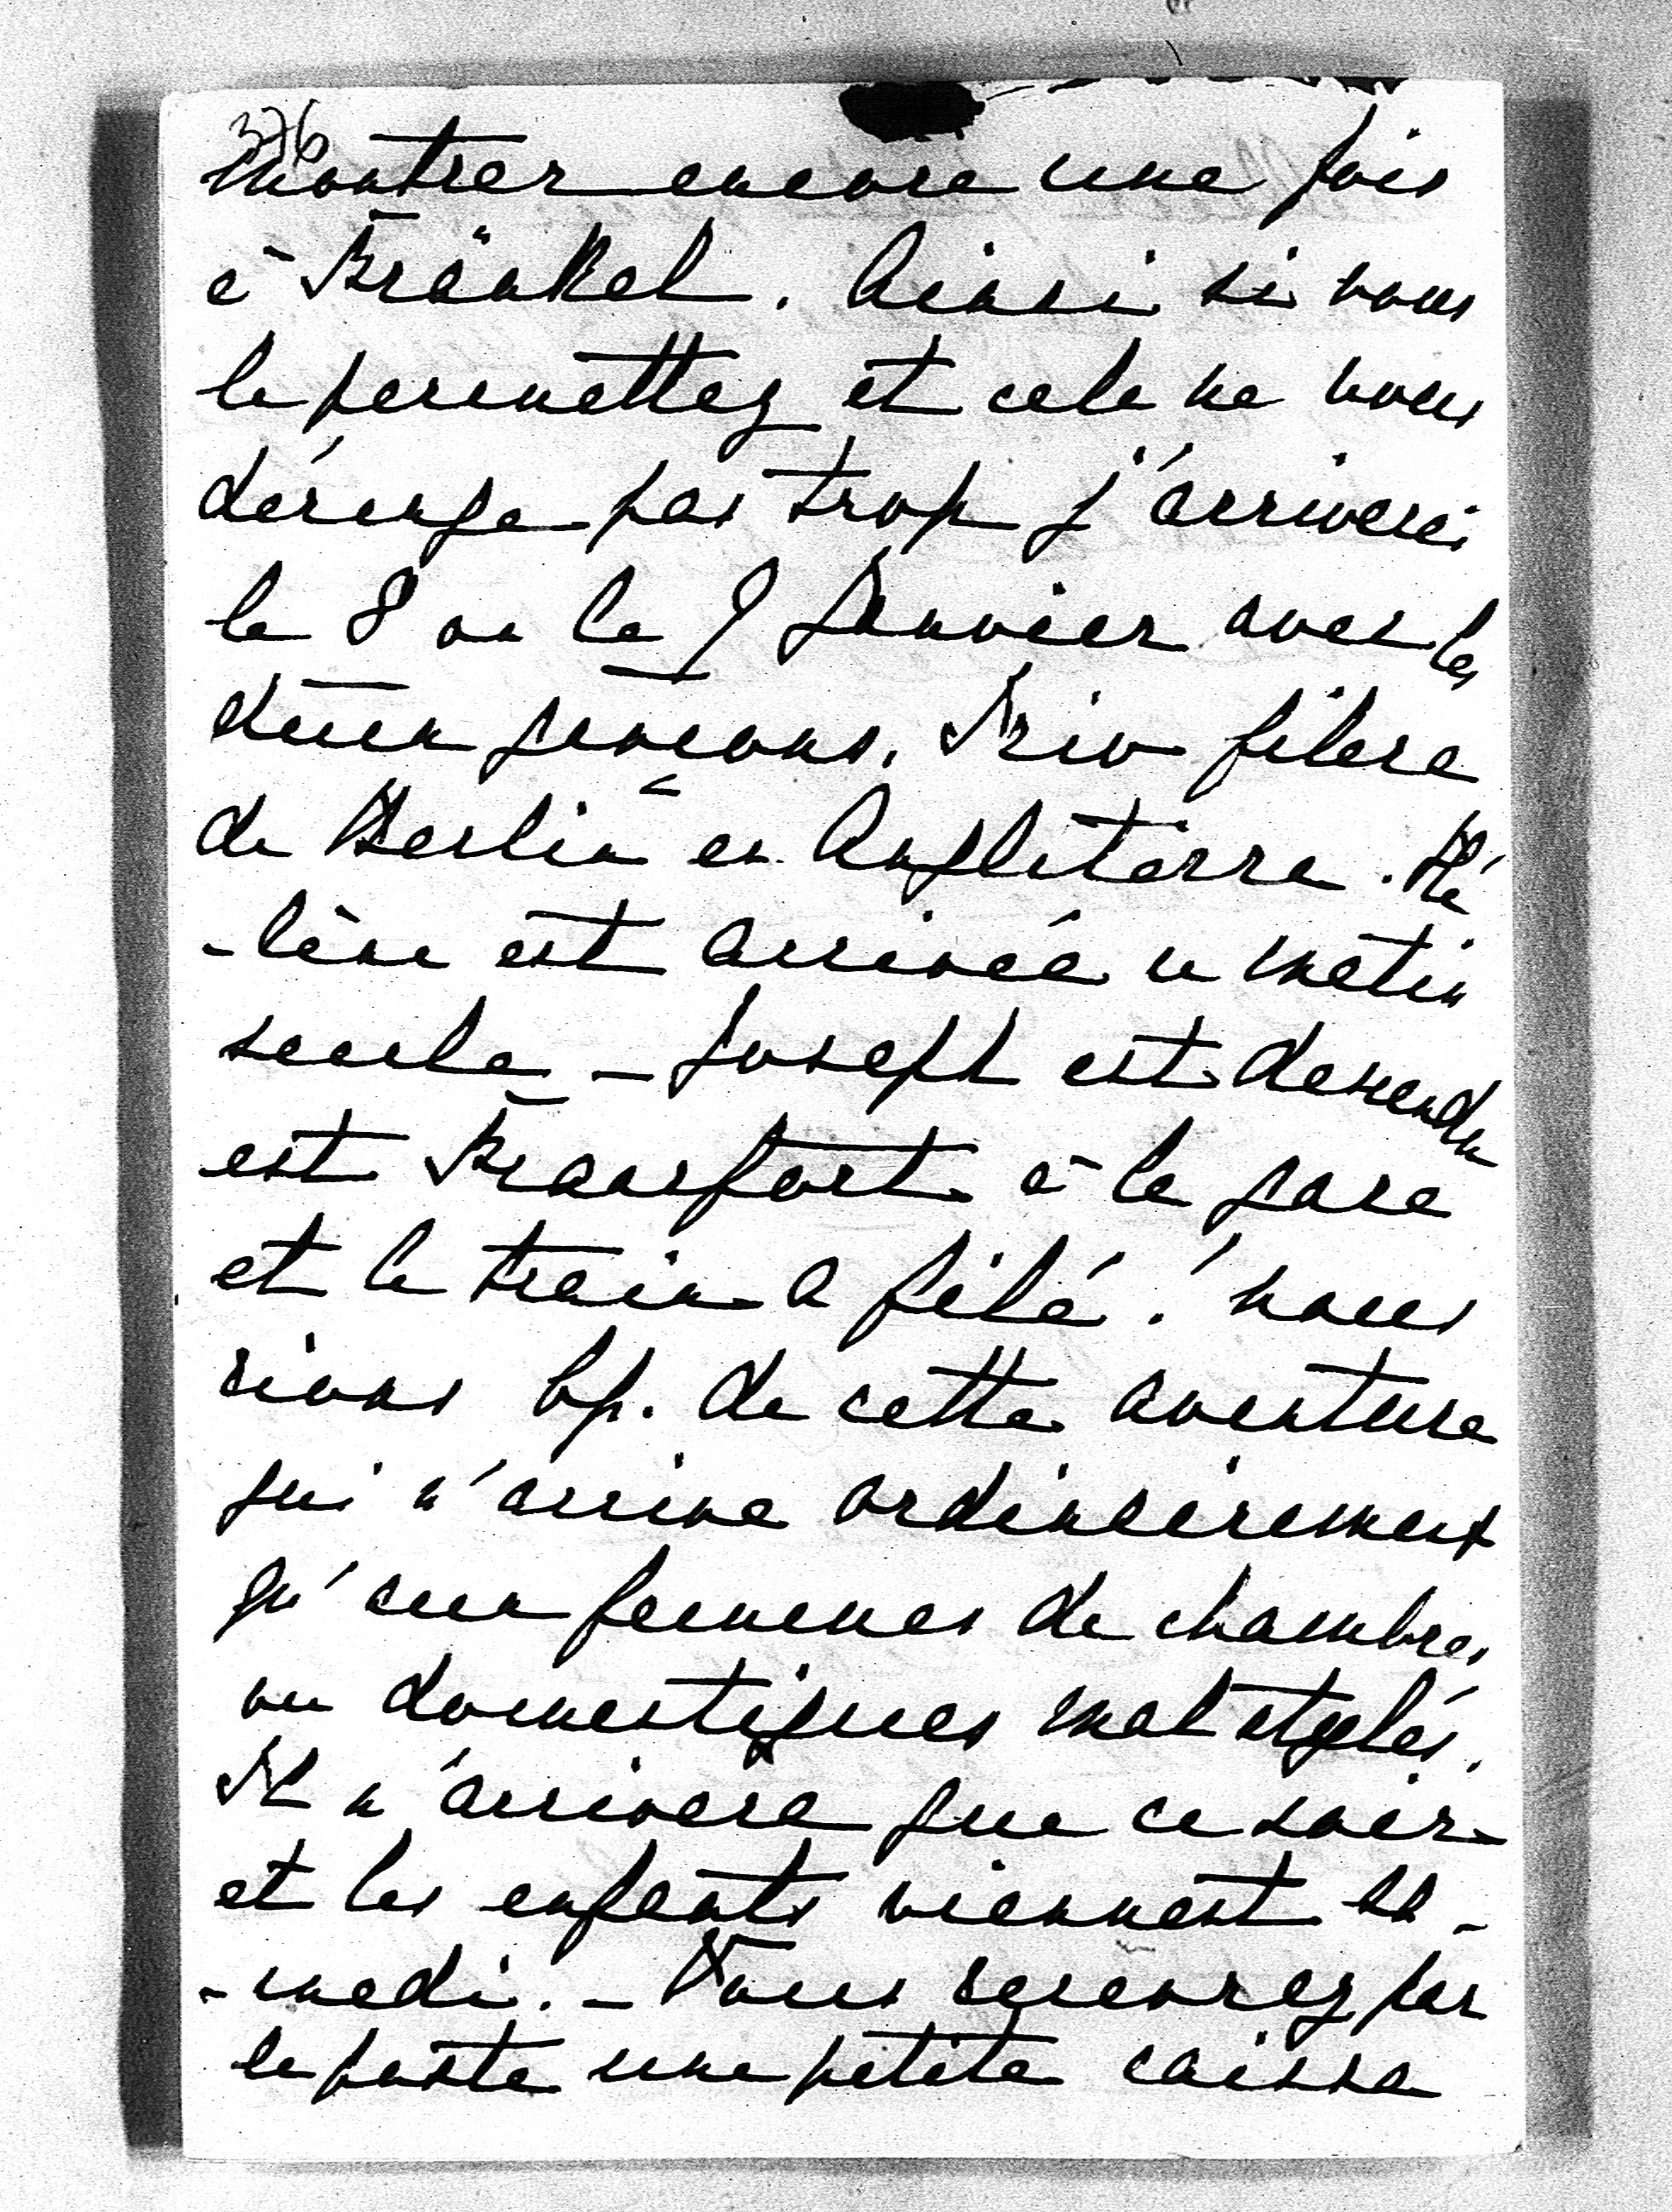 376
montrer encore une fois
à Fränkel. Ainsi si vous
le permettez et cela ne vous
dérange pas trop j'arriverai
le 8 ou le 9 Janvier avec les
deux garçons. Trio filera
de Berlin en Angleterre. Hé
-lène est arrivée ce matin
seule – Joseph est descendu
est Francfort à la gare
et le train a filé! nous
rions bp. de cette aventure
qui n'arrive ordinairement
qu'aux femmes de chambres
ou domestiques mal stylés.
Il n'arrivera que ce soir
et les enfants viennent sa-
-medi. – Vous recevrez par
la poste une petite caisse